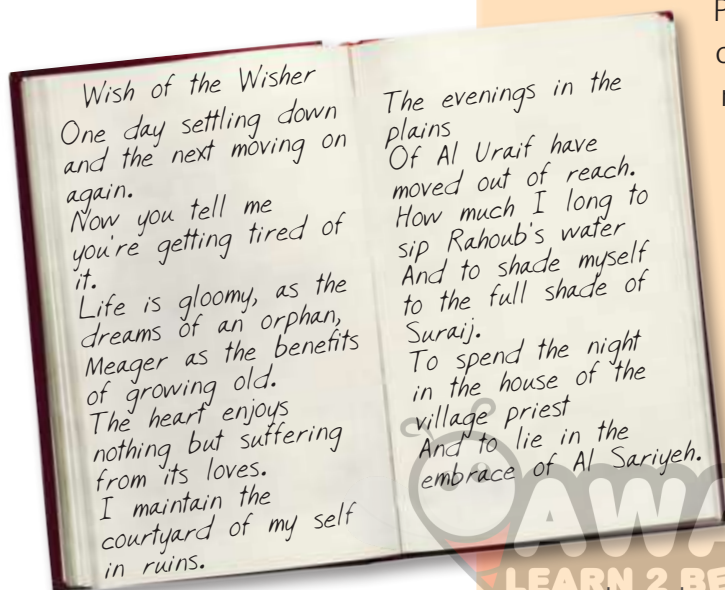 Wish of the Wisher
One day settling down
and the next moving on
again.
Now you tell me
you're getting tired of
it.
Life is gloomy, as the
dreams of an orphan,
Meager as the benefits
of growing old.
The heart enjoys
nothing but suffering
from its loves.
I maintain the
courtyard of my self
in ruins.
The evenings in the
plains
Of Al Uraif have
moved out of reach.
How much I long to
sip Rahoub's water
And to shade myself
to the full shade of
Suraij.
To spend the night
in the house of the
village priest
And to lie in the
embrace of Al Sariyeh.
AWA
LEARN 2 BE